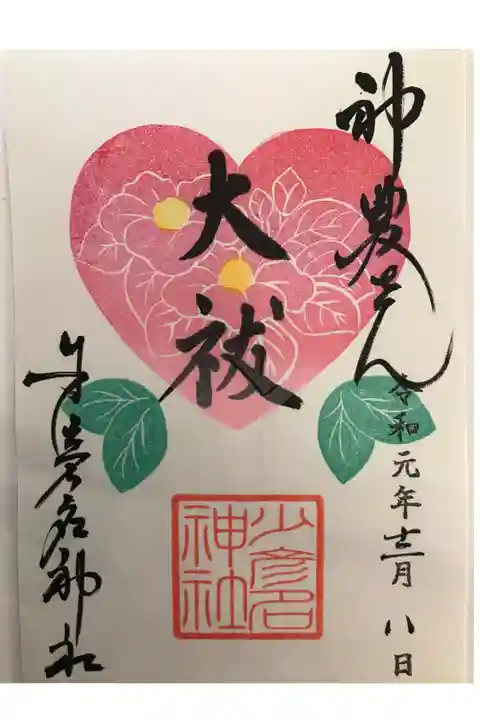 神農さん
令和元年十二月八日
大祓
少彦名神社
少彦名
神社